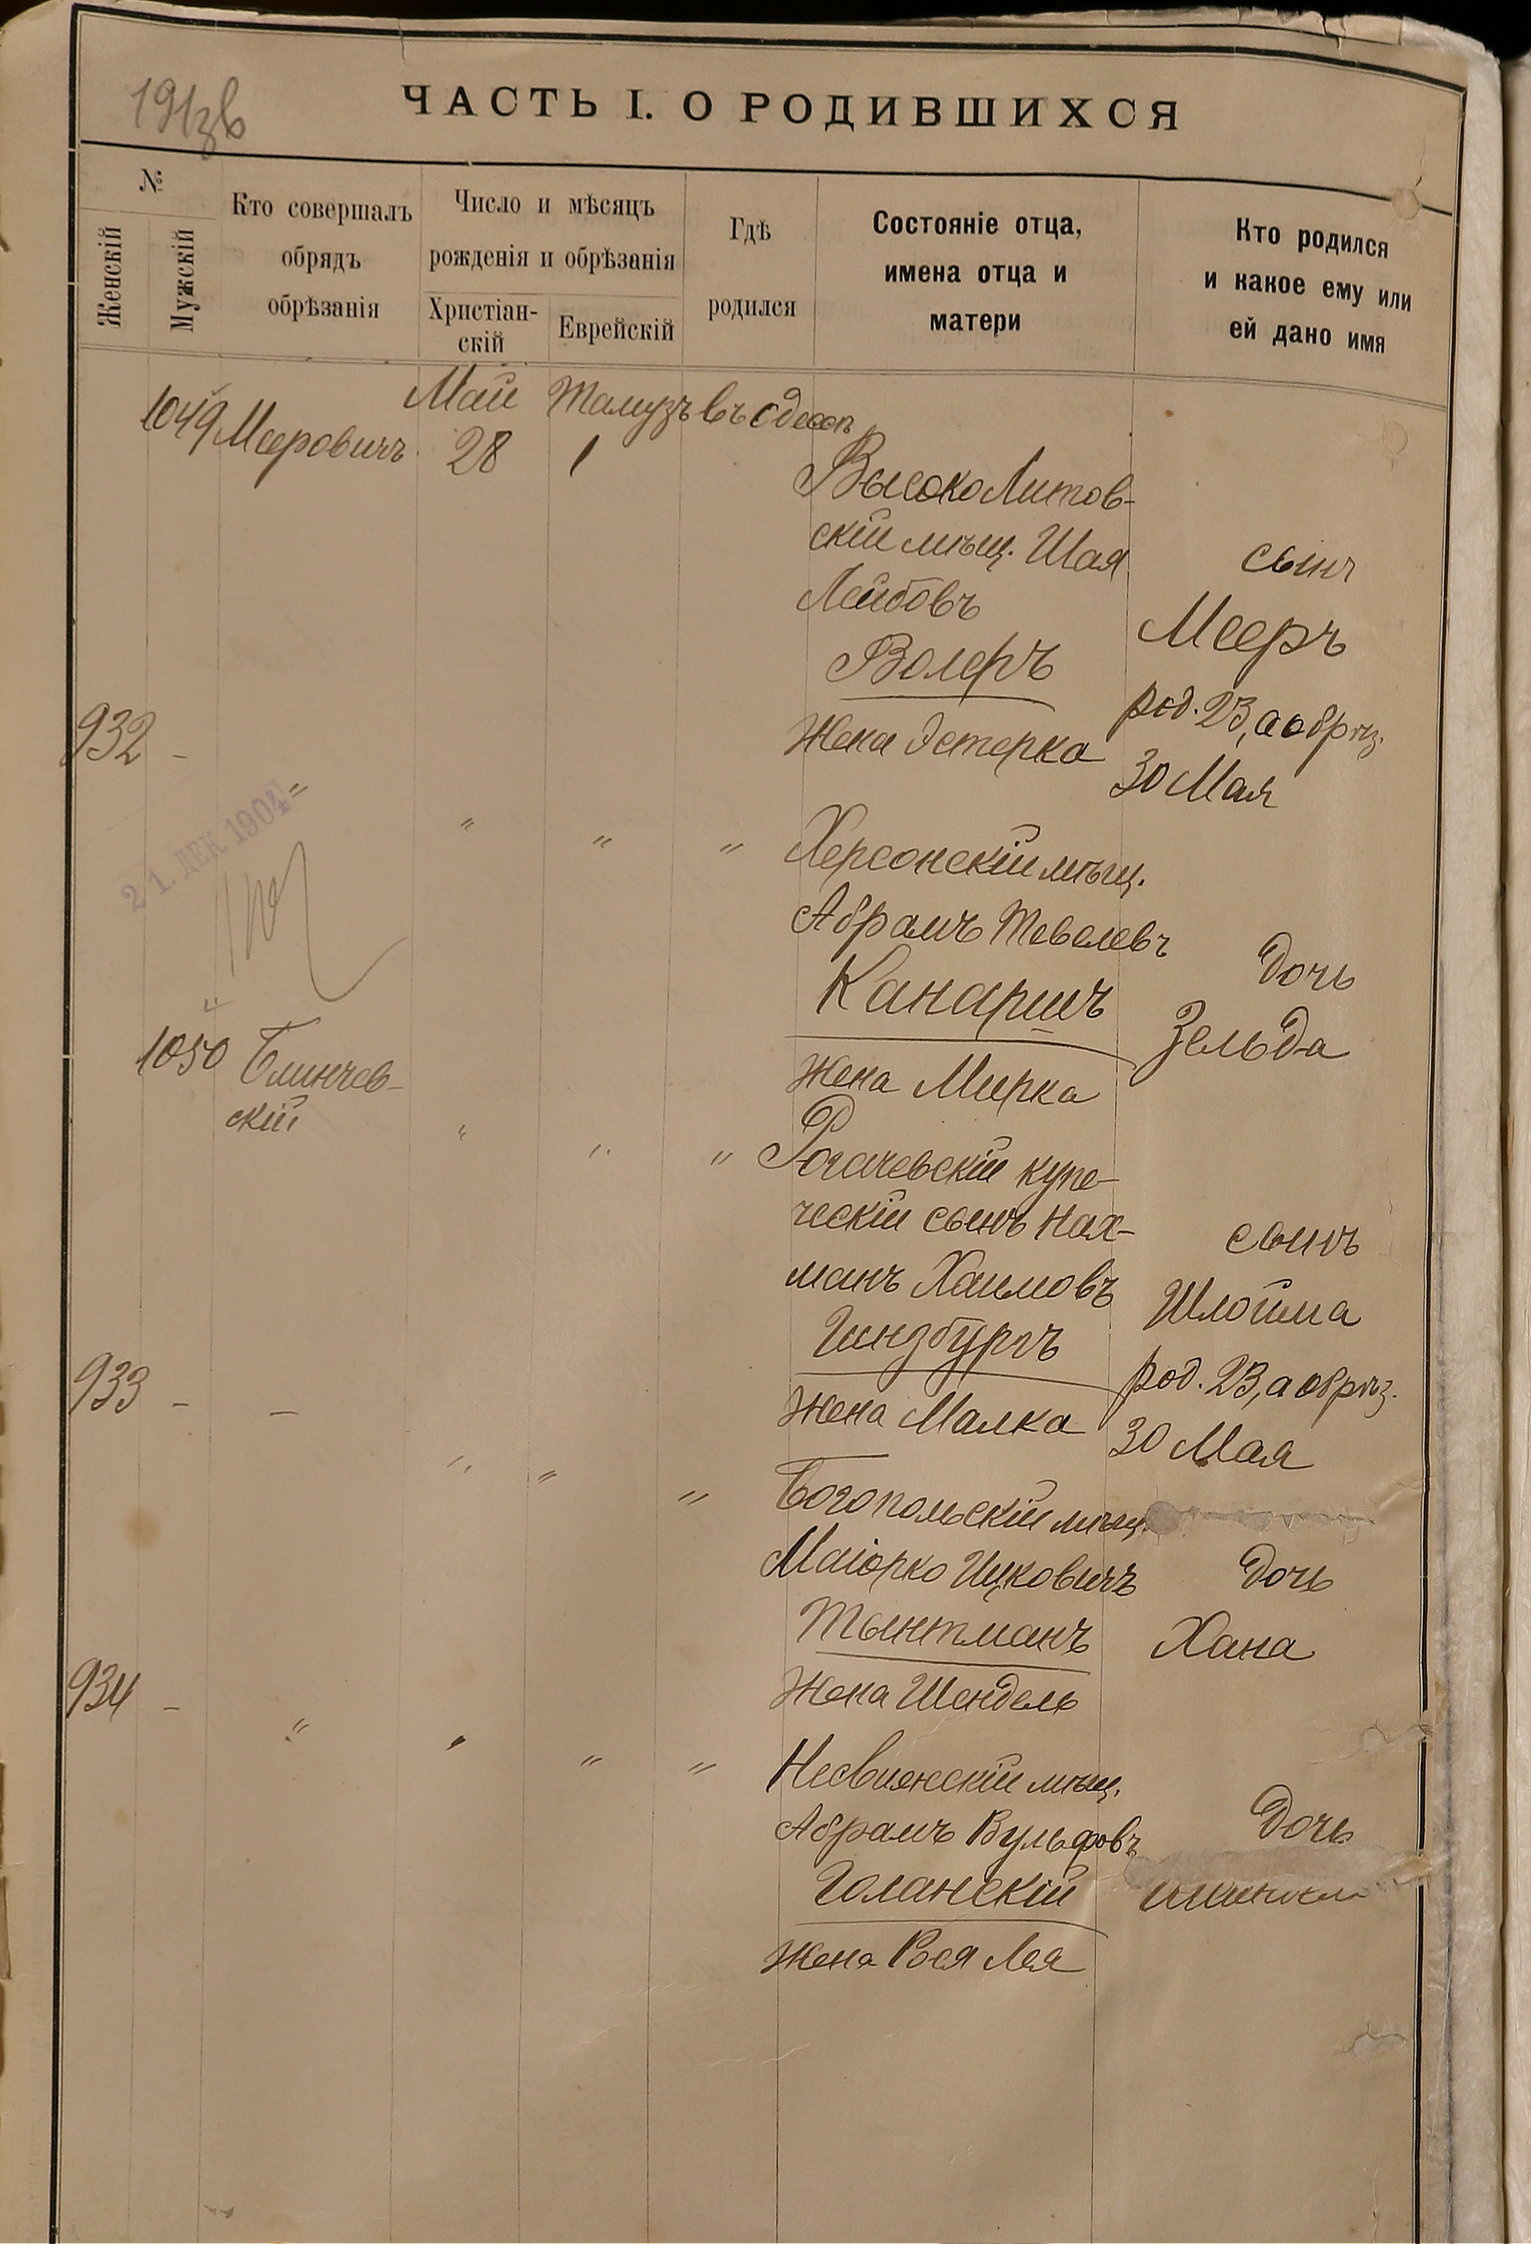 191зв
ЧАСТЬ I. О РОДИВШИХСЯ
№
Женскій
Мужскій
Кто совершалъ
обрядъ
обрѣзанія
Число и мѣсяцъ
рожденія и обрѣзанія
Христіан-
скій
Еврейскій
Гдѣ
родился
Состояніе отца,
имена отца и
матери
Кто родился
и какое ему или
ей дано имя
1049 Мееровичъ
Май 28
Тамузъ 1
въ Одессѣ
ВысокоЛитов-
скій мѣщ. Шая
Лейбовъ
Волеръ
Жена Эстерка
сынъ
Мееръ
род. 23, а обрѣз.
30 Мая
932 -
21. ДЕК 1904
" " " "
Херсонскій мѣщ.
Абрамъ Тевелевъ
Канаришъ
Жена Мирка
дочь
Зельда
1050 Блинчев-
скій
" " "
Рогачевскій купе-
ческій сынъ Нах-
манъ Хаимовъ
Гинзбургъ
Жена Малка
сынъ
Шлойма
род. 23, а обрѣз.
30 Мая
933 - -
" " "
Богопольскій мѣщ.
Маіорко Ицковичъ
Тынтманъ
Жена Шендель
дочь
Хана
934 -
" " " "
Несвижскій мѣщ.
Абрамъ Вульфовъ
Голанскій
Жена Рося Лея
дочь